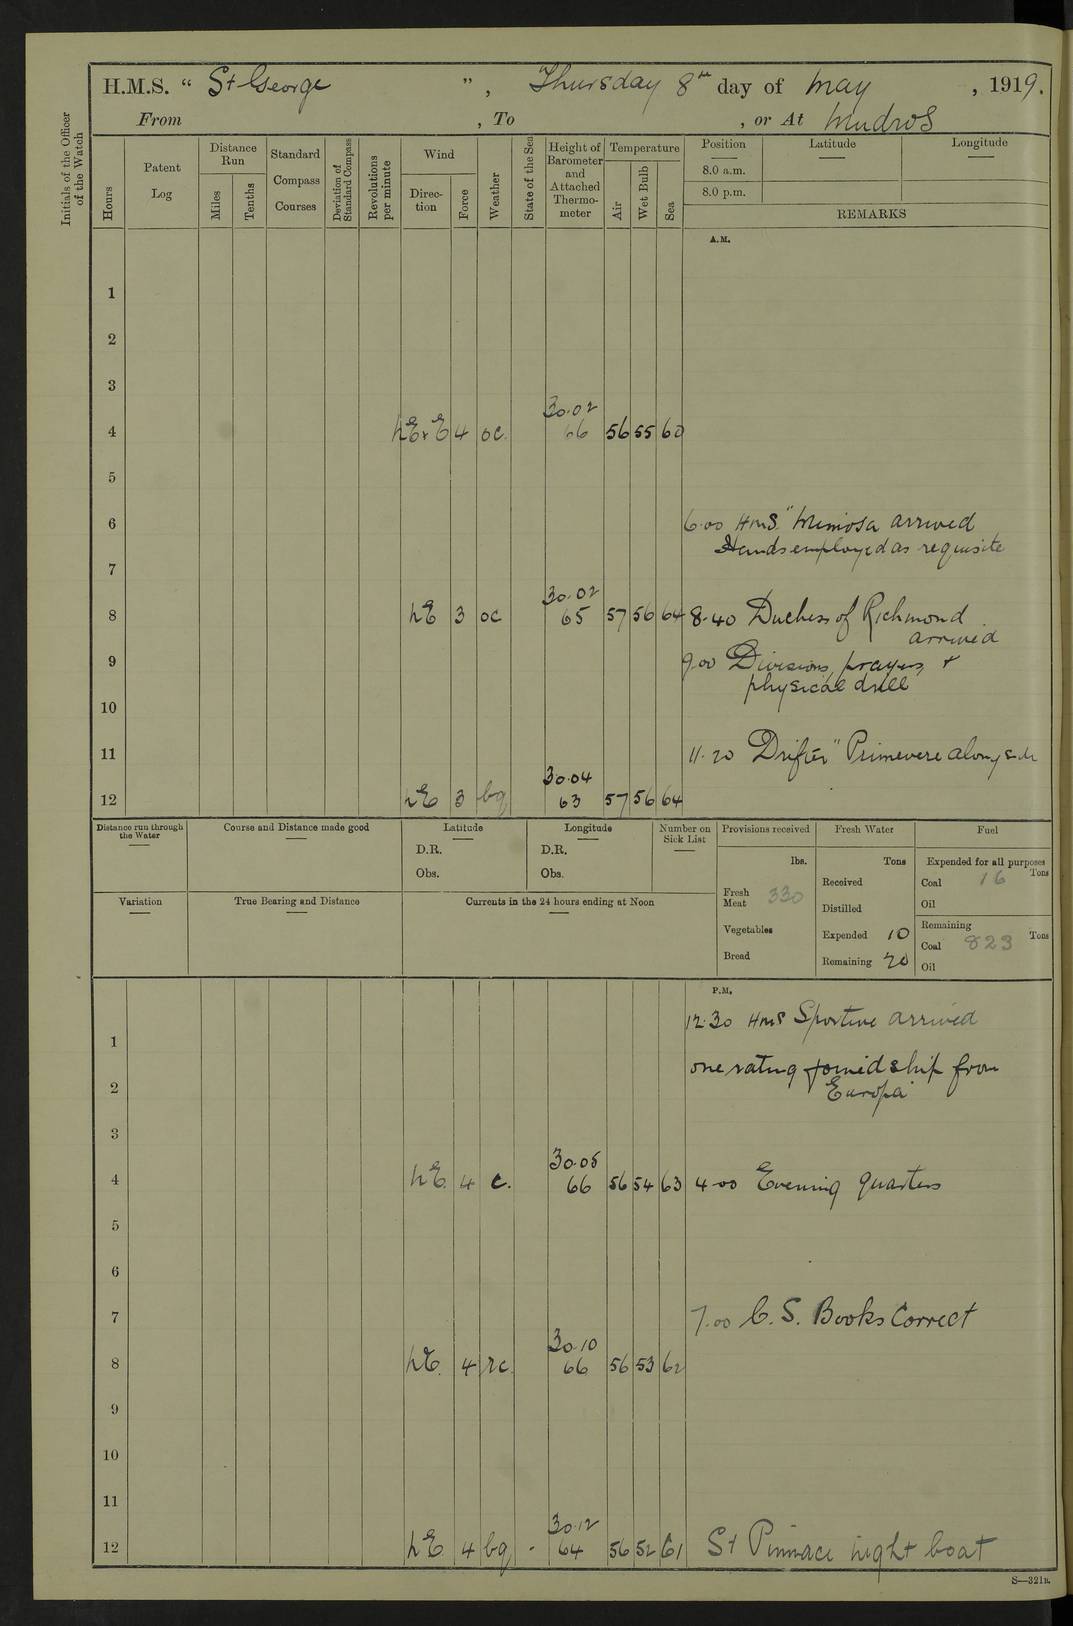 H.M.S. “ St George ” , Thursday 8th day of May , 1919.
From , To , or At Mudros
Initials of the Officer of the Watch
Hours
Patent Log
Distance Run
Miles
Tenths
Standard Compass Courses
Deviation of Standard Compass
Revolutions per minute
Wind
Direction
Force
Weather
State of the Sea
Height of Barometer and Attached Thermometer
Temperature
Air
Wet Bulb
Sea
Position Latitude Longitude
8.0 a.m.
8.0 p.m.
REMARKS
A.M.
1
2
3
30.02
4 NExE 4 oc. 66 56 55 60
5
6 6.00 HMS "Mimosa arrived
Hands employed as requisite
7
30.02
8 NE 3 oc 65 57 56 64 8.40 Duchess of Richmond
arrived
9 9.00 Divisions, prayers, +
physical drill
10
11 11.20 Drifter "Primevere alongside
30.04
12 NE 3 bq 63 57 56 64
Distance run through the Water
Course and Distance made good
Latitude
D.R.
Obs.
Longitude
D.R.
Obs.
Number on Sick List
Provisions received
lbs.
Fresh Meat 330
Vegetables
Bread
Fresh Water
Tons
Received
Distilled
Expended 10
Remaining 70
Fuel
Expended for all purposes
Coal 16 Tons
Oil
Remaining
Coal 823 Tons
Oil
Variation
True Bearing and Distance
Currents in the 24 hours ending at Noon
P.M.
12.30 HMS Sportive arrived
1
one rating joined ship from
2 Europa
3
30.05
4 NE. 4 c. 66 56 54 63 4.00 Evening quarters
5
6
7 7.00 C. S. Books Correct
30.10
8 NE. 4 rc. 66 56 53 62
9
10
11
30.12
12 NE 4 bq - 64 56 52 61 St Pinnace night boat
S—321B.